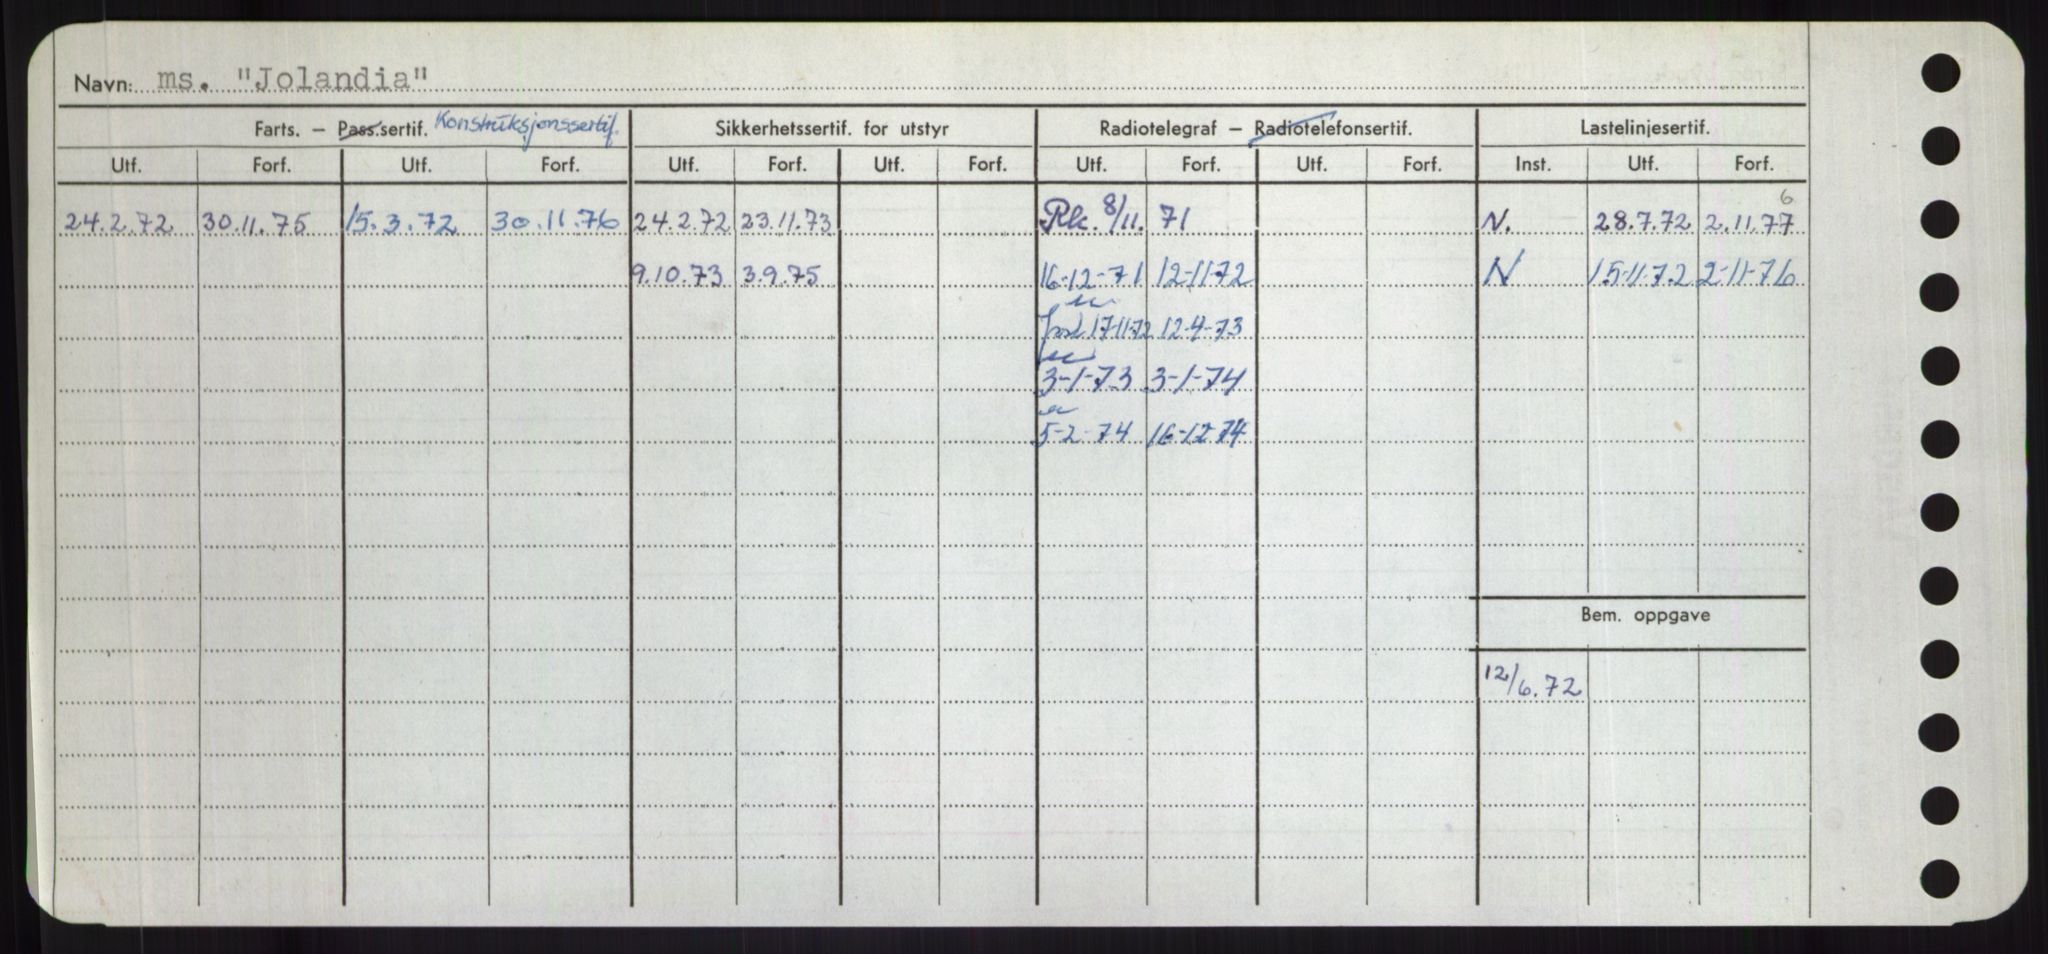 Navn: ms. "Jolandia"
Farts. – Pass.sertif. Konstruksjonssertif. Sikkerhetssertif. for utstyr Radiotelegraf – Radiotelefonsertif. Lastelinjesertif.
Utf. Forf. Utf. Forf. Utf. Forf. Utf. Forf. Utf. Forf. Utf. Forf. Inst. Utf. Forf.
6
24.2.72 30.11.75 15.3.72 30.11.76 24.2.72 23.11.73 Rk. 8/11. 71 N. 28.7.72 2.11.77
9.10.73 3.9.75 16-12-71 12-11-72 N 15-11-72 2-11-76
17-11-72 12-4-73
3-1-73 3-1-74
5-2-74 16-12-74
Bem. oppgave
12/6.72